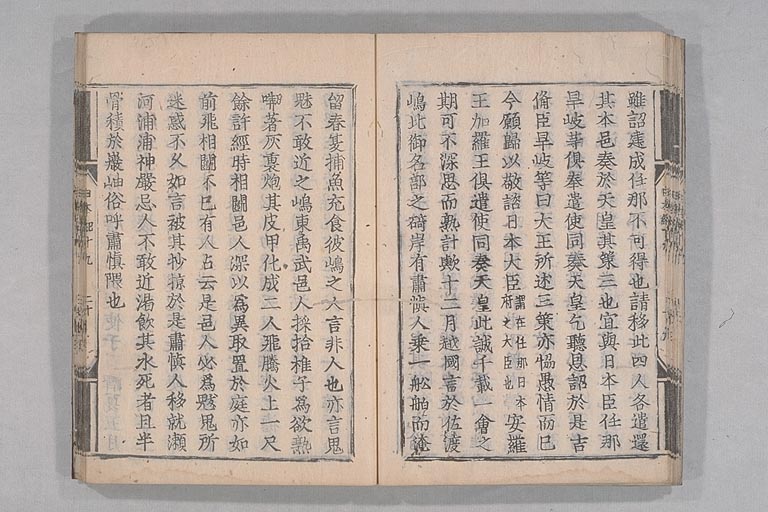 雖詔建成任那不可得也請移此四人各遣還
其本邑奏於天皇其策三也宜與日本臣任那
旱岐等俱奉遣使同奏天皇乞聽恩詔於是吉
備臣旱岐等曰大王所述三策亦恊愚情而已
今願歸以敬諮日本大臣謂在任那日本府之大臣也安羅
王加羅王俱遣使同奏天皇此誠千載一會之
期可不深思而熟計歟十二月越國言於佐渡
嶋北御名部之碕岸有肅慎人乘一舩舶而淹
留春夏捕魚充食彼嶋之人言非人也亦言鬼
魅不敢近之嶋東禹武邑人採拾椎子爲欲熟
喫著灰裏炮其皮甲化成二人飛騰火上一尺
餘許經時相鬪邑人深以爲異取置於庭亦如
前飛相鬪不已有人占云是邑人必爲魃鬼所
迷惑不久如言被其抄掠於是肅慎人移就瀬
河浦浦神嚴忌人不敢近渴飲其水死者且半
骨積於巖岫俗呼肅慎隈也
日本紀十九